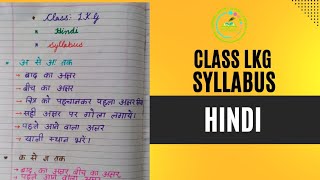 Class: L.K.G
Hindi
Syllabus
अ से अः तक
→ बाद का अक्षर
→ बीच का अक्षर
→ चित्र को पहचानकर पहला अक्षर
→ सही अक्षर पर गोला लगाये।
→ पहले आने वाला अक्षर
→ खाली स्थान भरें।
क से ज्ञ तक
→ बाद का अक्षर बीच का अक्षर
→ पहले आने वाला अक्षर
CLASS LKG
SYLLABUS
HINDI